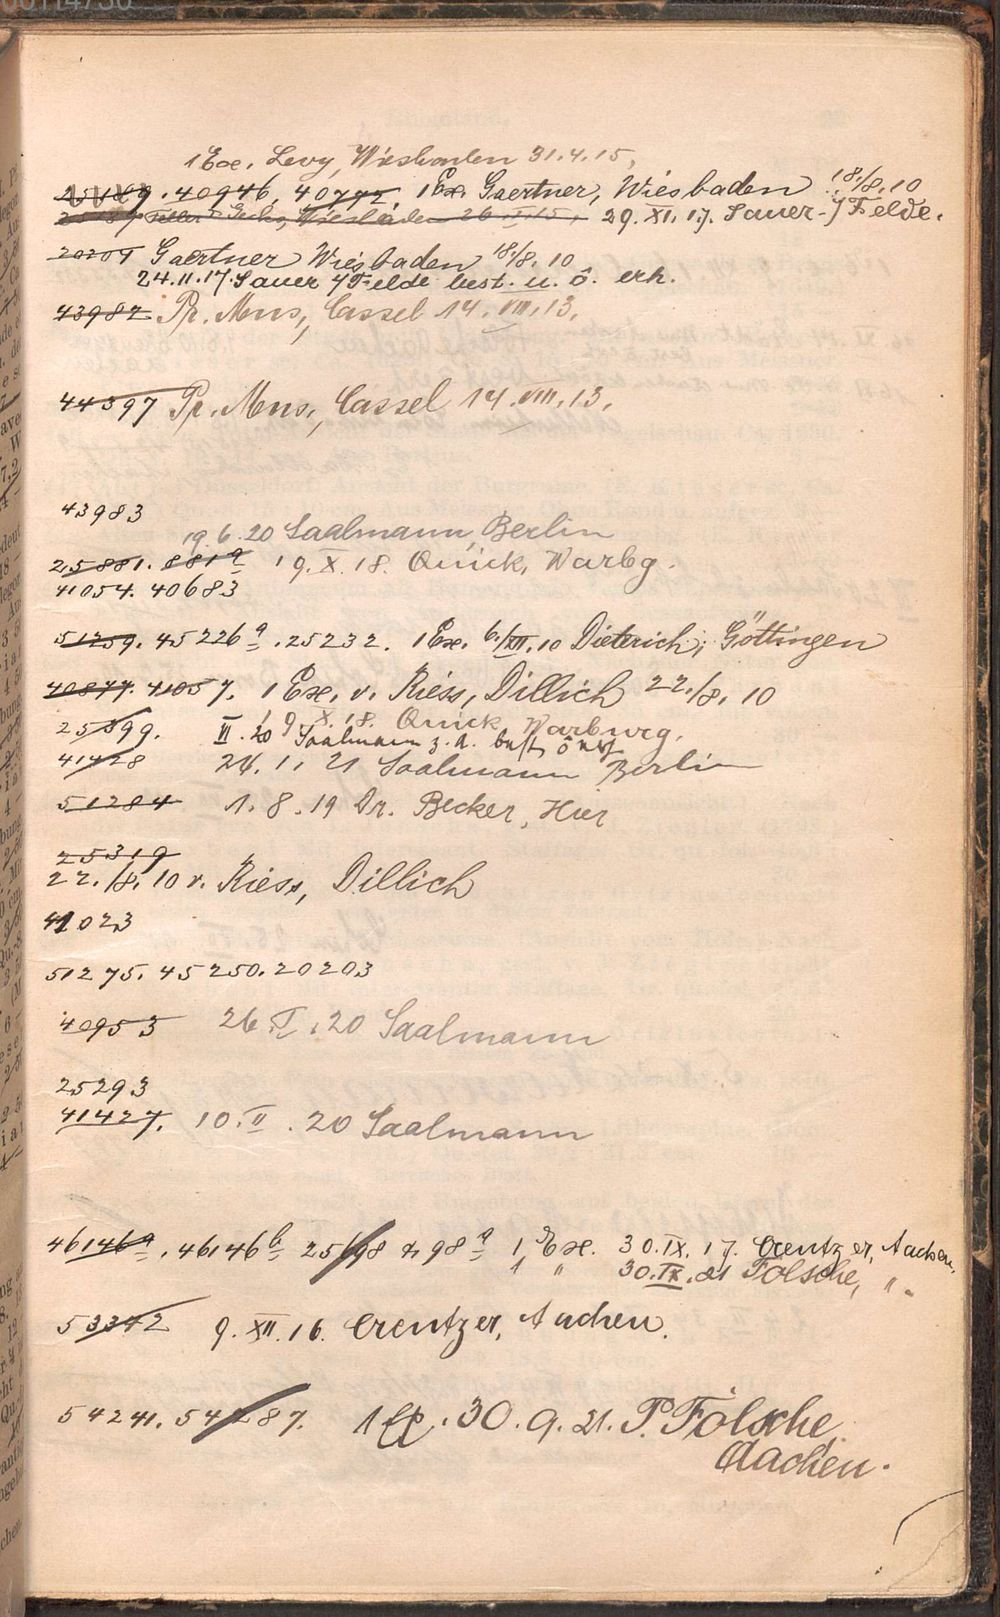 1 Ex. Levy, Wiesbaden 31.4.15,
25189. 40946, 40772, 1 Ex. Gaertner, Wiesbaden 18./8.10
Wiesbaden 26. 29. XI. 17. Sauer-7Felde.
20204 Gaertner Wiesbaden 18./8. 10
24.11.17 Sauer 7Felde best. u. ö. erh.
43982 Pr. Mus, Cassel 14. VIII. 13.
44397 Pr. Mus, Cassel 14. VIII. 13.
43983
19.6.20 Saalmann, Berlin
25881. 881a 19. X. 18. Quick, Warbg.
41054. 40683
51259. 45226a. 25232. 1 Ex. 6./XII. 10 Dieterich, Göttingen
40877. 41057. 1 Ex. v. Riess, Dillich 22./8. 10
25899. 19. X. 18. Quick, Warburg.
II. 20 Saalmann z. A.
41428 24. 1. 21 Saalmann Berlin
51284 1. 8. 19 Dr. Becker, Hier
25319
22./8. 10 v. Riess, Dillich
41023
51275. 45250. 20203
40953 26. I. 20 Saalmann
25293
41427. 10. II. 20 Saalmann
46146a. 46146b 25698 98a 1 Ex. 30. IX. 17. Creutzer, Aachen.
1 " 30. IX. 21 Fölsche, ".
53342 9. XII. 16. Creutzer, Aachen.
54241. 54287. 1 Ex. 30. 9. 21. P. Fölsche,
Aachen.